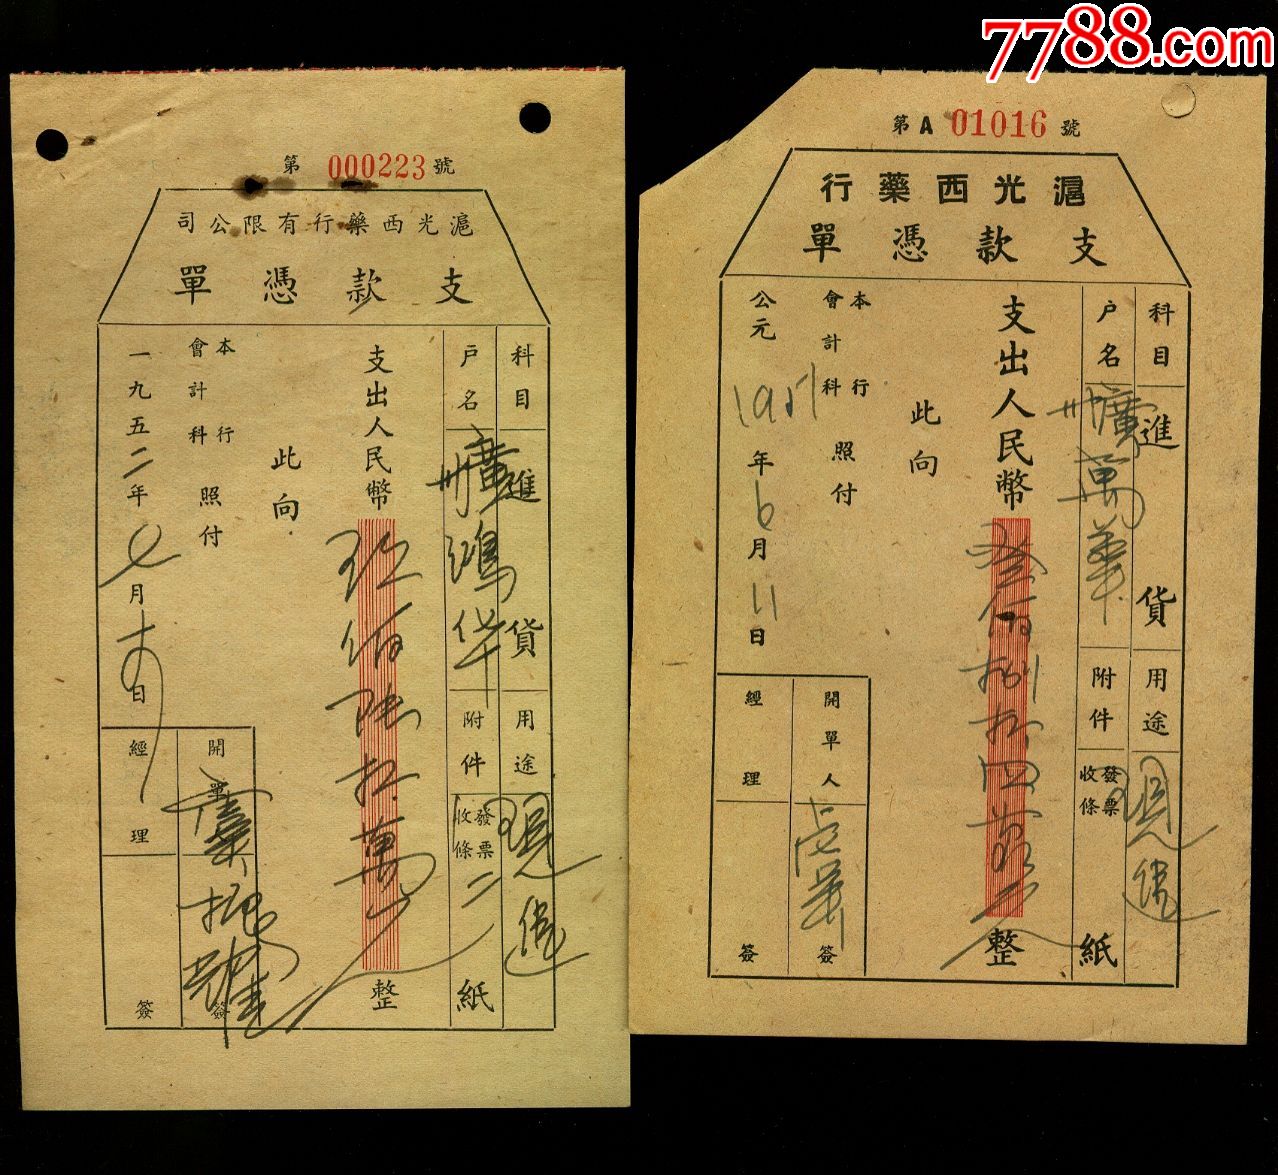 7788.com
第 000223 號
滬光西藥行有限公司
支款憑單
科目
進貨
用途
戶名
鴻华
附件
發票
收條
二
紙
支出人民幣
玖佰陸拾萬
整
此向
本行
會計科
照付
一九五二年七月日
開單
簽
經理
簽
第 A 01016 號
滬光西藥行
支款憑單
科目
進貨
用途
户名
萬華
附件
發票
收條
紙
支出人民幣
叁佰捌拾四萬
整
此向
本行
會計科
照付
公元1951年6月11日
開單人
簽
經理
簽